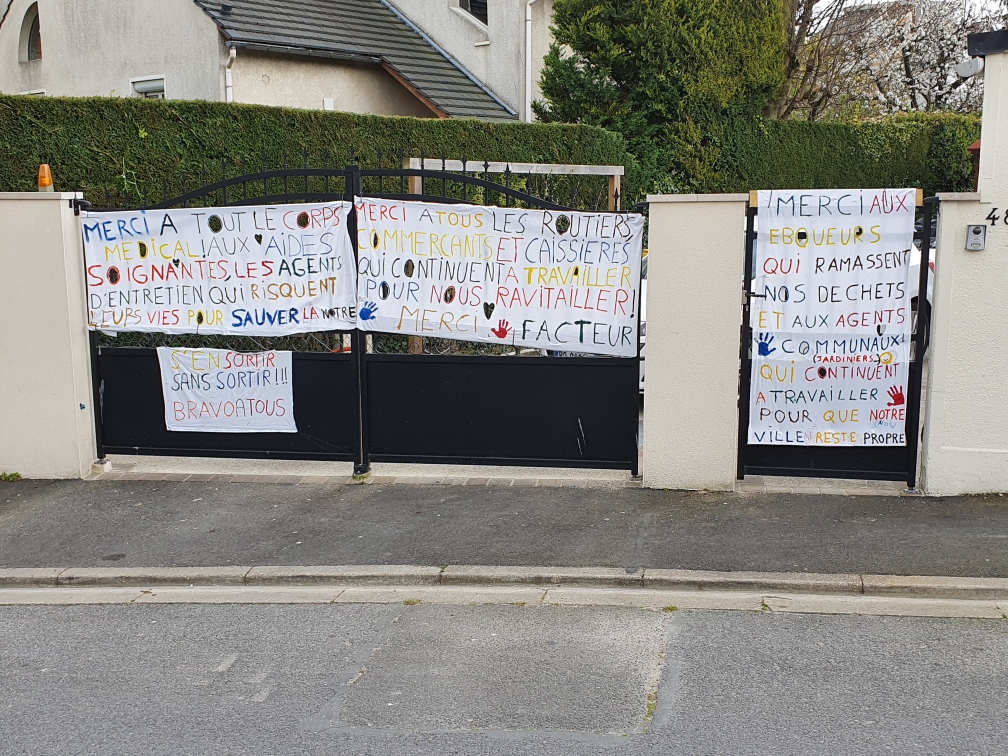 MERCI A TOUT LE CORPS
MEDICAL! AUX AIDES
SOIGNANTES, LES AGENTS
D'ENTRETIEN QUI RISQUENT
LEURS VIES POUR SAUVER LA NOTRE
S'EN SORTIR
SANS SORTIR!!!
BRAVO A TOUS
MERCI A TOUS LES ROUTIERS
COMMERCANTS ET CAISSIERES
QUI CONTINUENT A TRAVAILLER
POUR NOUS RAVITAILLER!
MERCI FACTEUR
MERCI AUX
EBOUEURS
QUI RAMASSENT
NOS DECHETS
ET AUX AGENTS
COMMUNAUX!
(JARDINIERS)
QUI CONTINUENT
A TRAVAILLER
POUR QUE NOTRE
VILLE RESTE PROPRE